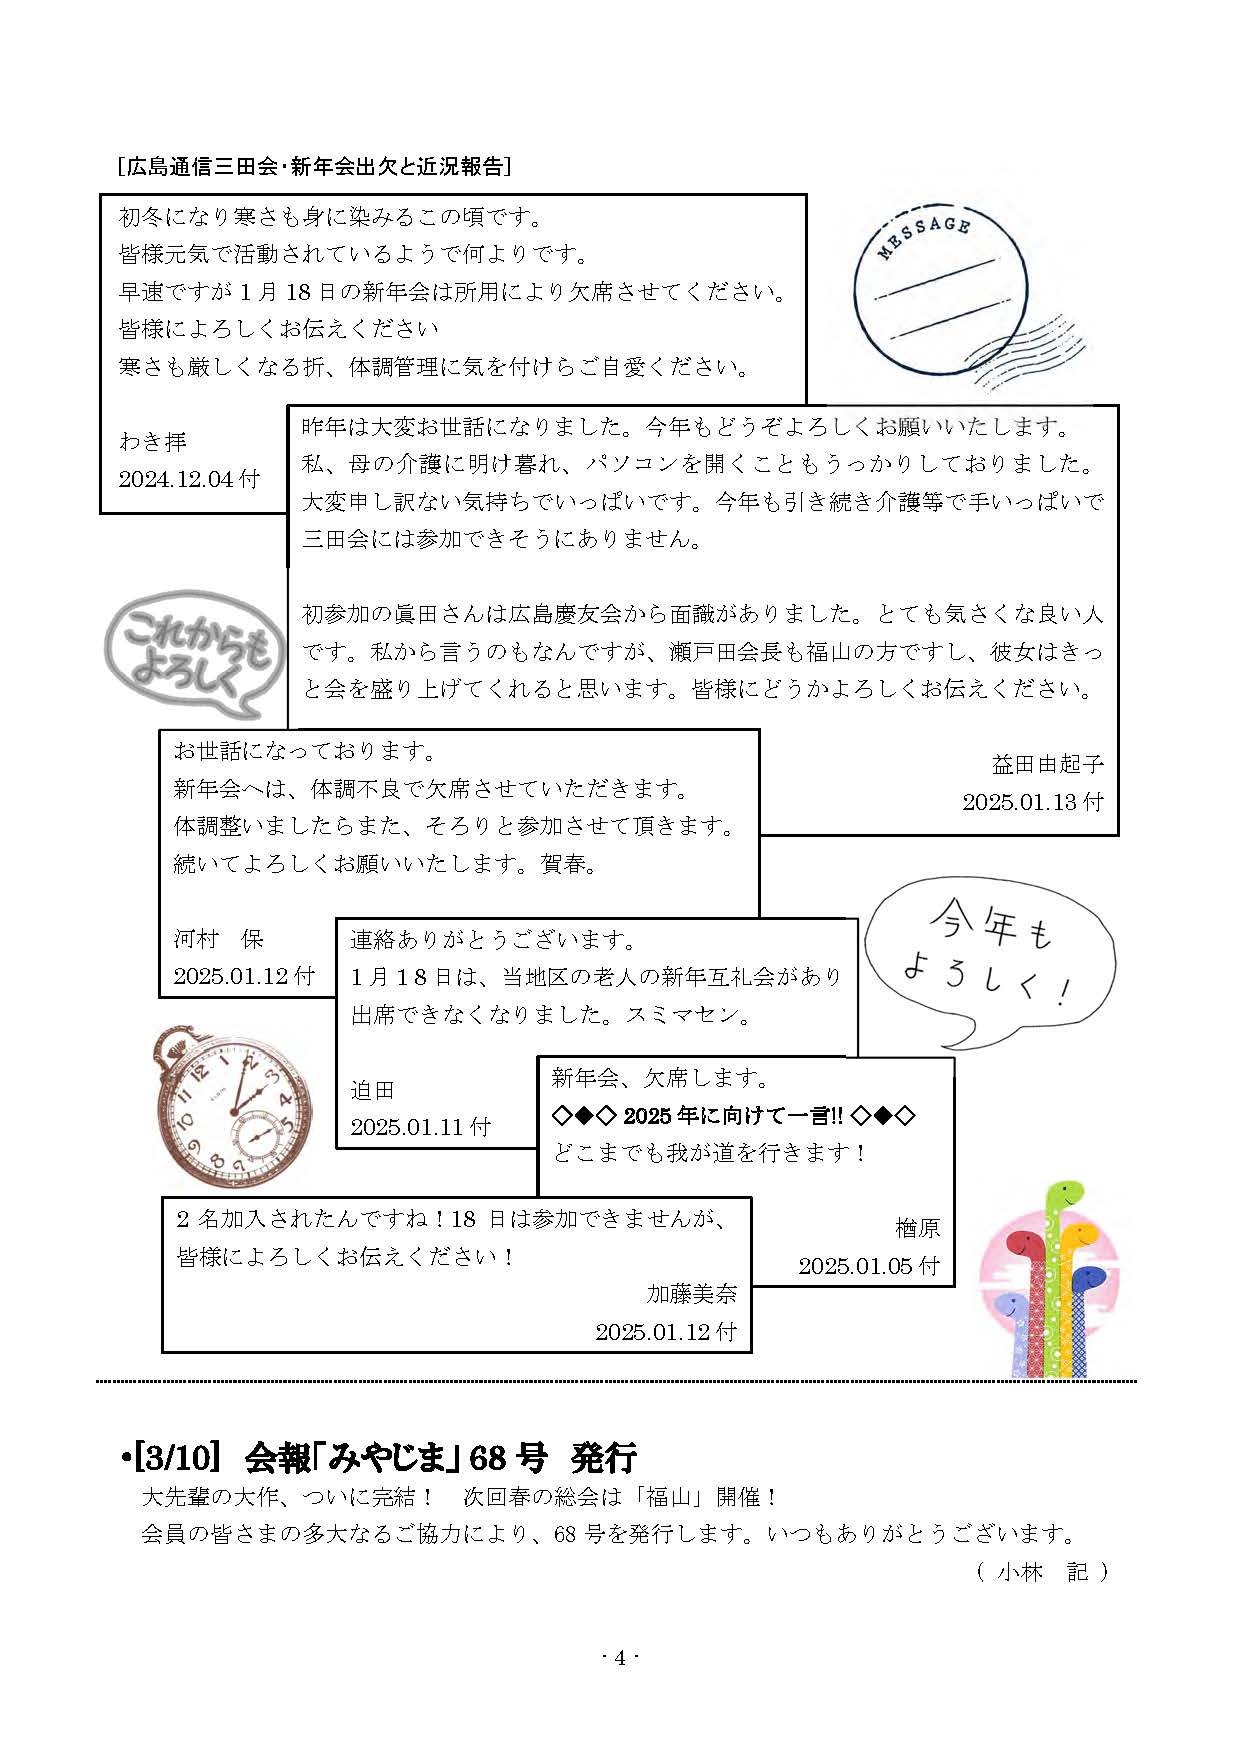 [広島通信三田会・新年会出欠と近況報告]
初冬になり寒さも身に染みるこの頃です。
皆様元気で活動されているようで何よりです。
早速ですが 1 月 18 日の新年会は所用により欠席させてください。
皆様によろしくお伝えください
寒さも厳しくなる折、体調管理に気を付けらご自愛ください。
わき拝
2024.12.04 付
MESSAGE
昨年は大変お世話になりました。今年もどうぞよろしくお願いいたします。
私、母の介護に明け暮れ、パソコンを開くこともうっかりしておりました。
大変申し訳ない気持ちでいっぱいです。今年も引き続き介護等で手いっぱいで
三田会には参加できそうにありません。
初参加の眞田さんは広島慶友会から面識がありました。とても気さくな良い人
です。私から言うのもなんですが、瀬戸田会長も福山の方ですし、彼女はきっ
と会を盛り上げてくれると思います。皆様にどうかよろしくお伝えください。
益田由起子
2025.01.13 付
これからも
よろしく
お世話になっております。
新年会へは、体調不良で欠席させていただきます。
体調整いましたらまた、そろりと参加させて頂きます。
続いてよろしくお願いいたします。賀春。
河村　保
2025.01.12 付
今年も
よろしく！
連絡ありがとうございます。
1 月 1 8 日は、当地区の老人の新年互礼会があり
出席できなくなりました。スミマセン。
迫田
2025.01.11 付
新年会、欠席します。
◇◆◇ 2025 年に向けて一言!! ◇◆◇
どこまでも我が道を行きます！
楢原
2025.01.05 付
2 名加入されたんですね！18 日は参加できませんが、
皆様によろしくお伝えください！
加藤美奈
2025.01.12 付
・[3/10]　会報「みやじま」68 号　発行
大先輩の大作、ついに完結！　次回春の総会は「福山」開催！
会員の皆さまの多大なるご協力により、68 号を発行します。いつもありがとうございます。
（ 小林　記 ）
- 4 -